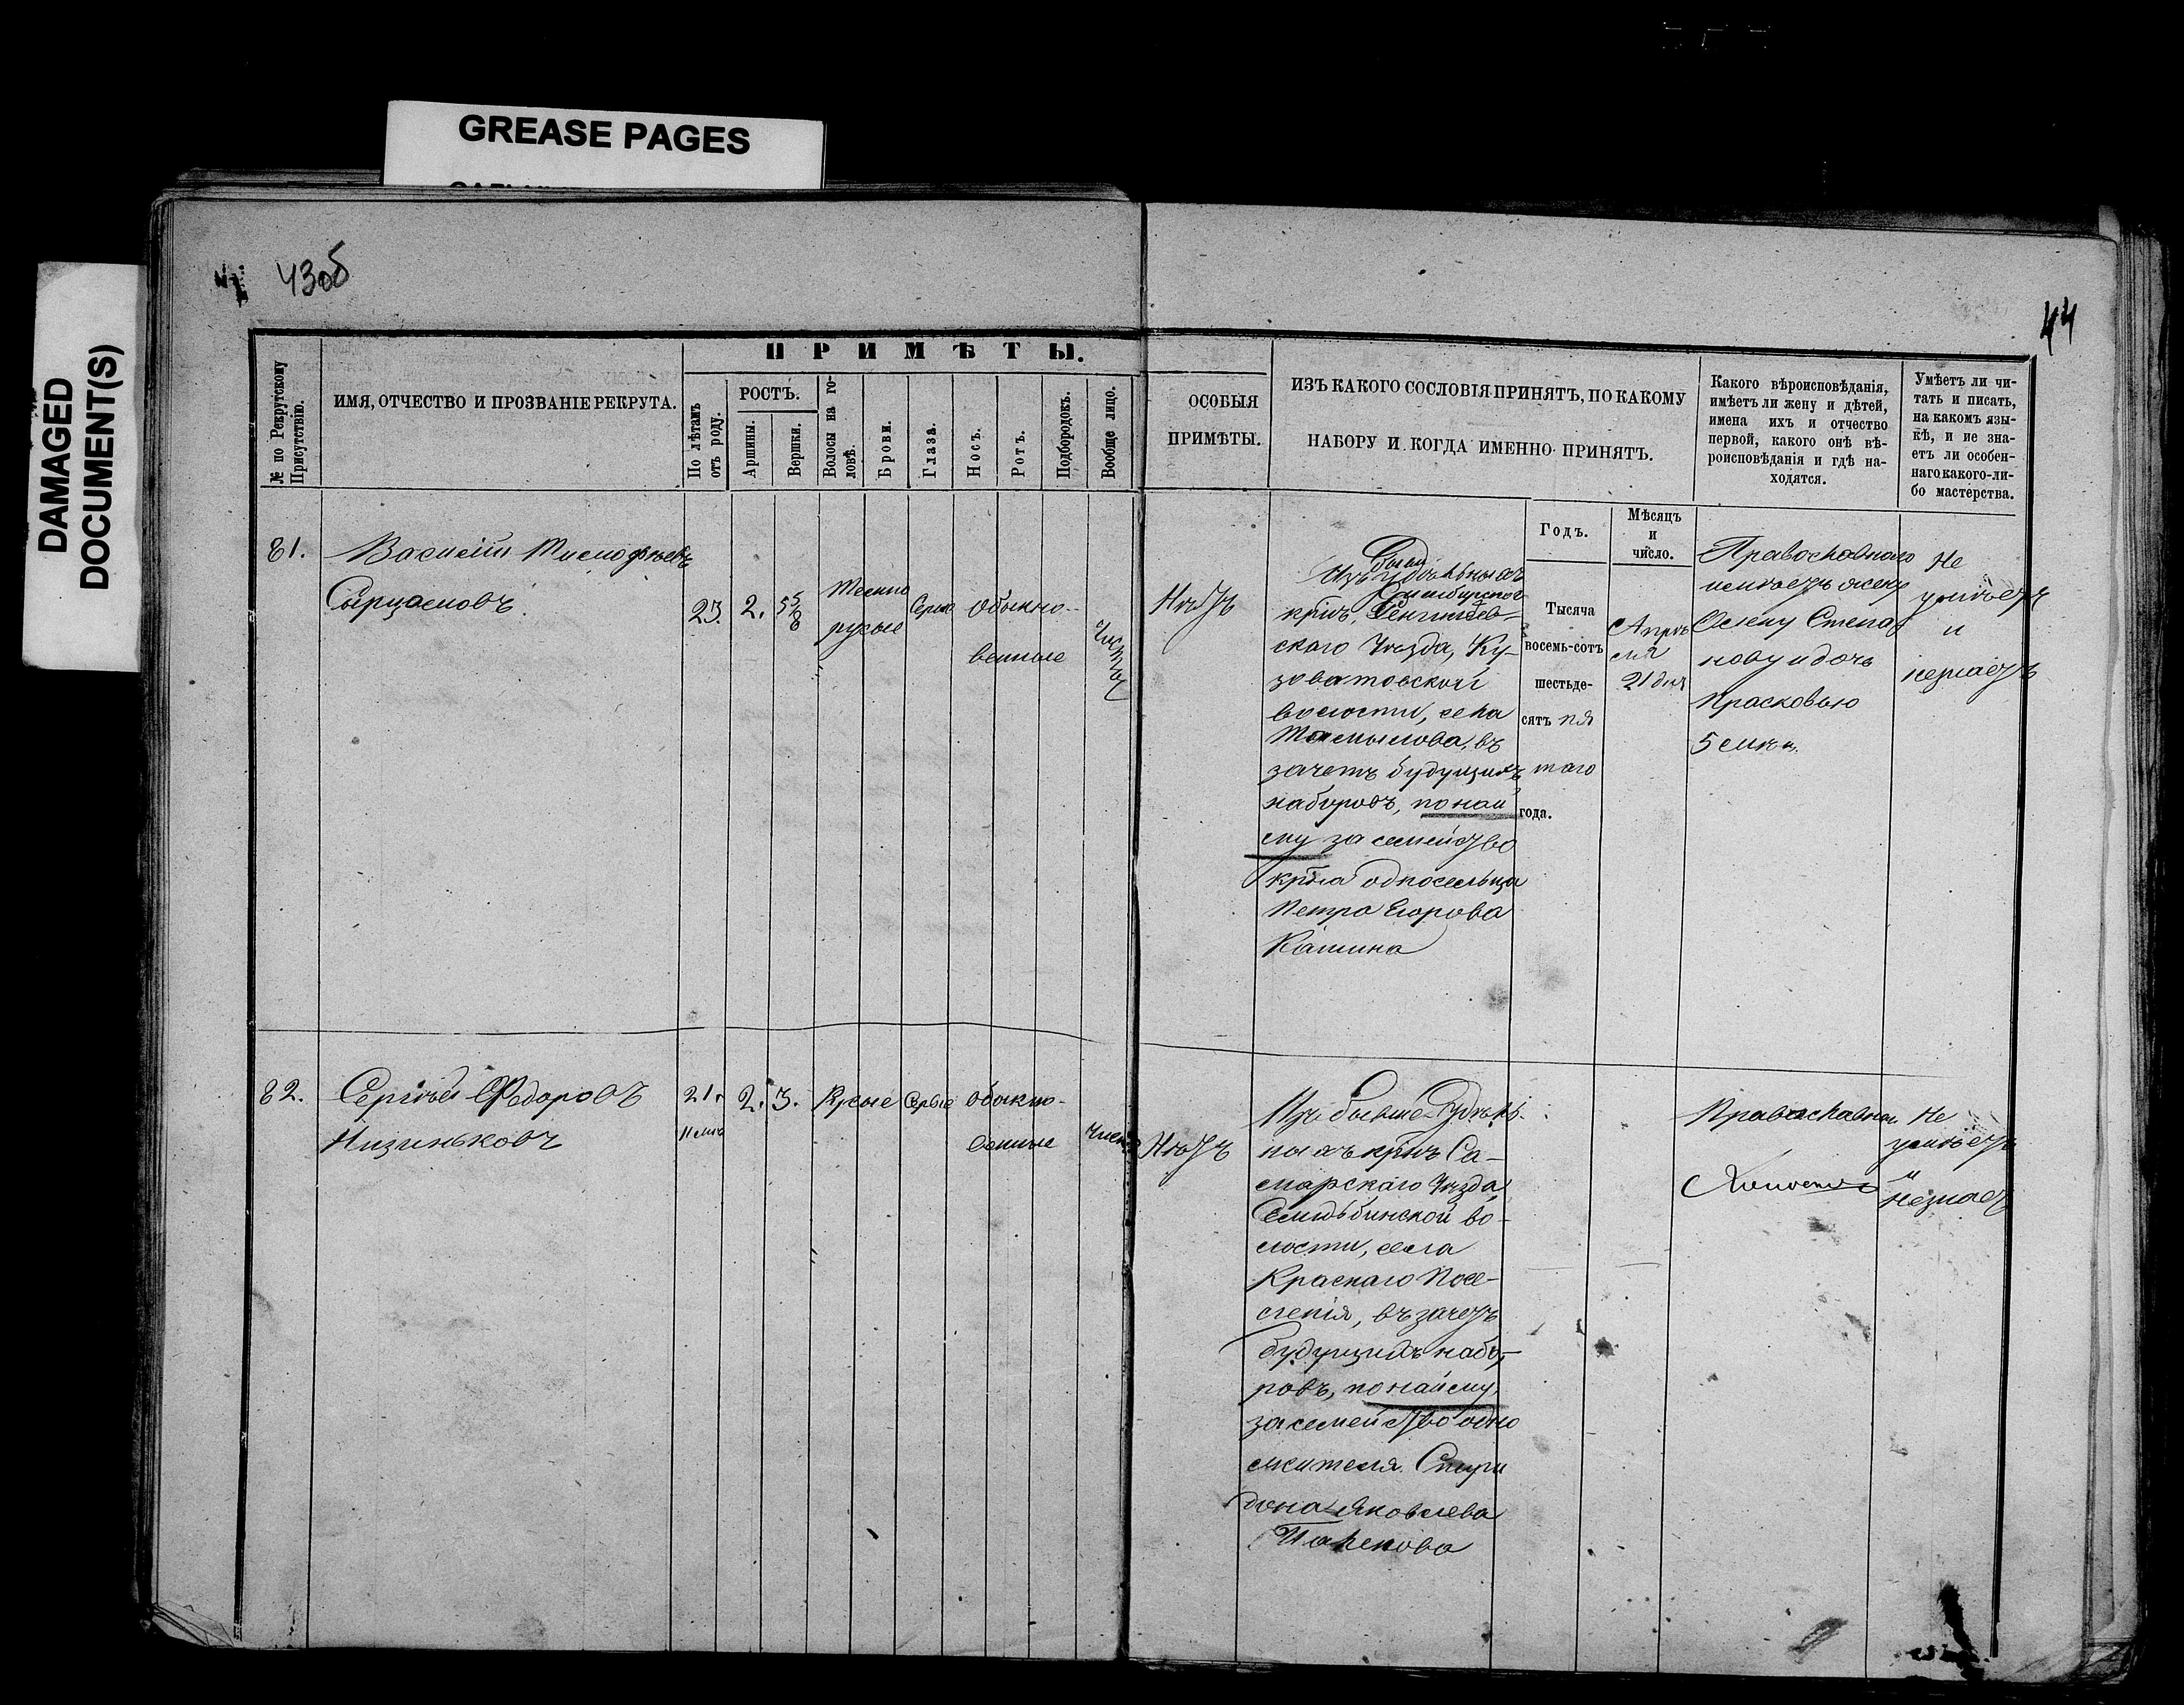 GREASE PAGES
DAMAGED
DOCUMENT(S)
43об
44
№ по Рекрутскому
Присутствію.
ИМЯ, ОТЧЕСТВО И ПРОЗВАНІЕ РЕКРУТА.
ПРИМѢТЫ.
По лѣтамъ
отъ роду.
РОСТЪ.
Аршины.
Вершки.
Волосы на го-
ловѣ.
Брови.
Глаза.
Носъ.
Ротъ.
Подбородокъ.
Вообще лицо.
ОСОБЫЯ
ПРИМѢТЫ.
ИЗЪ КАКОГО СОСЛОВІЯ ПРИНЯТЪ, ПО КАКОМУ
НАБОРУ И КОГДА ИМЕННО ПРИНЯТЪ.
Какого вѣроисповѣданія,
имѣетъ ли жену и дѣтей,
имена ихъ и отчество
первой, какого онѣ вѣ-
роисповѣданія и гдѣ на-
ходятся.
Умѣетъ ли чи-
тать и писать,
на какомъ язы-
кѣ, и не зна-
етъ ли особен-
наго какого-ли-
бо мастерства.
Годъ.
Мѣсяцъ
и
число.
81.
Василій Тимофѣевъ
23.
2.
5 5/8
Темно
русые
Обыкно-
венные
чистое
Нѣтъ
Изъ удѣльныхъ
Симбирской
крѣнъ, Сенгилеев-
скаго Уѣзда, Ку-
зоватовской
волости, села
зачетъ будущихъ
наборовъ, по най
му за семейство
крѣна односельца
Петра Егорова
Кашина
Тысяча
восемь-сотъ
шестьде-
сятъ пя
таго
года.
Апрѣ
ля
21 дня
Православнаго
имѣетъ жену
Степа
нову и дочь
Прасковью
Не
умѣетъ
и
незнаетъ
82.
Сергѣй Ѳедоровъ
Низиньковъ
21.
2.
3.
Русые
Сѣрые
Обыкно-
венные
Нѣтъ
Изъ бывше-Удѣль-
ныхъ крѣнъ Са-
марскаго Уѣзда,
во-
лости, села
Краснаго Посе-
ленія, въ зачетъ
будущихъ набо-
ровъ, по найму,
за семейство одно
жителя Спири
дона Яковлева
Православнаго
Холостъ
Не
умѣетъ
и
незнаетъ